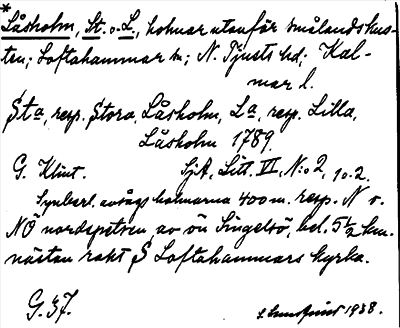 *Låsholm, St. o. L., holmar utanför Smålandskus-
ten; Loftahammar sn; N. Tjusts hd; Kal-
mar l.
Sta, resp. Stora, Låsholm, La, resp. Lilla,
Låsholm 1789.
G. Klint. SjA, Litt. VI, N:o 2, 1 o. 2.
Synberl. avses holmarna 400 m. resp. N o.
NÖ nordspetsen av ön Singelsö, bel. 5½ km.
nästan rakt S Loftahammars kyrka.
G. 37. 1938.